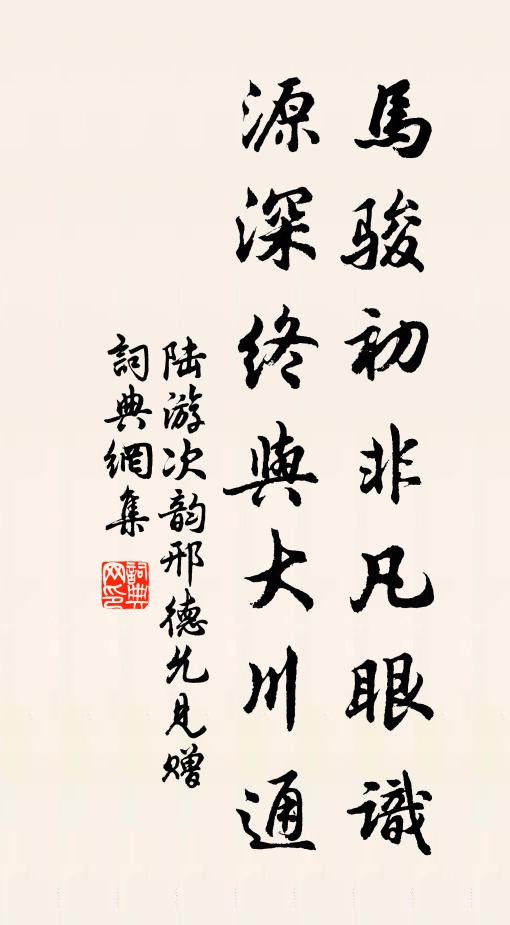 馬駿初非凡眼識
源深終與大川通
陆游次韵邢德允見赠
詞典網集
詞典网印